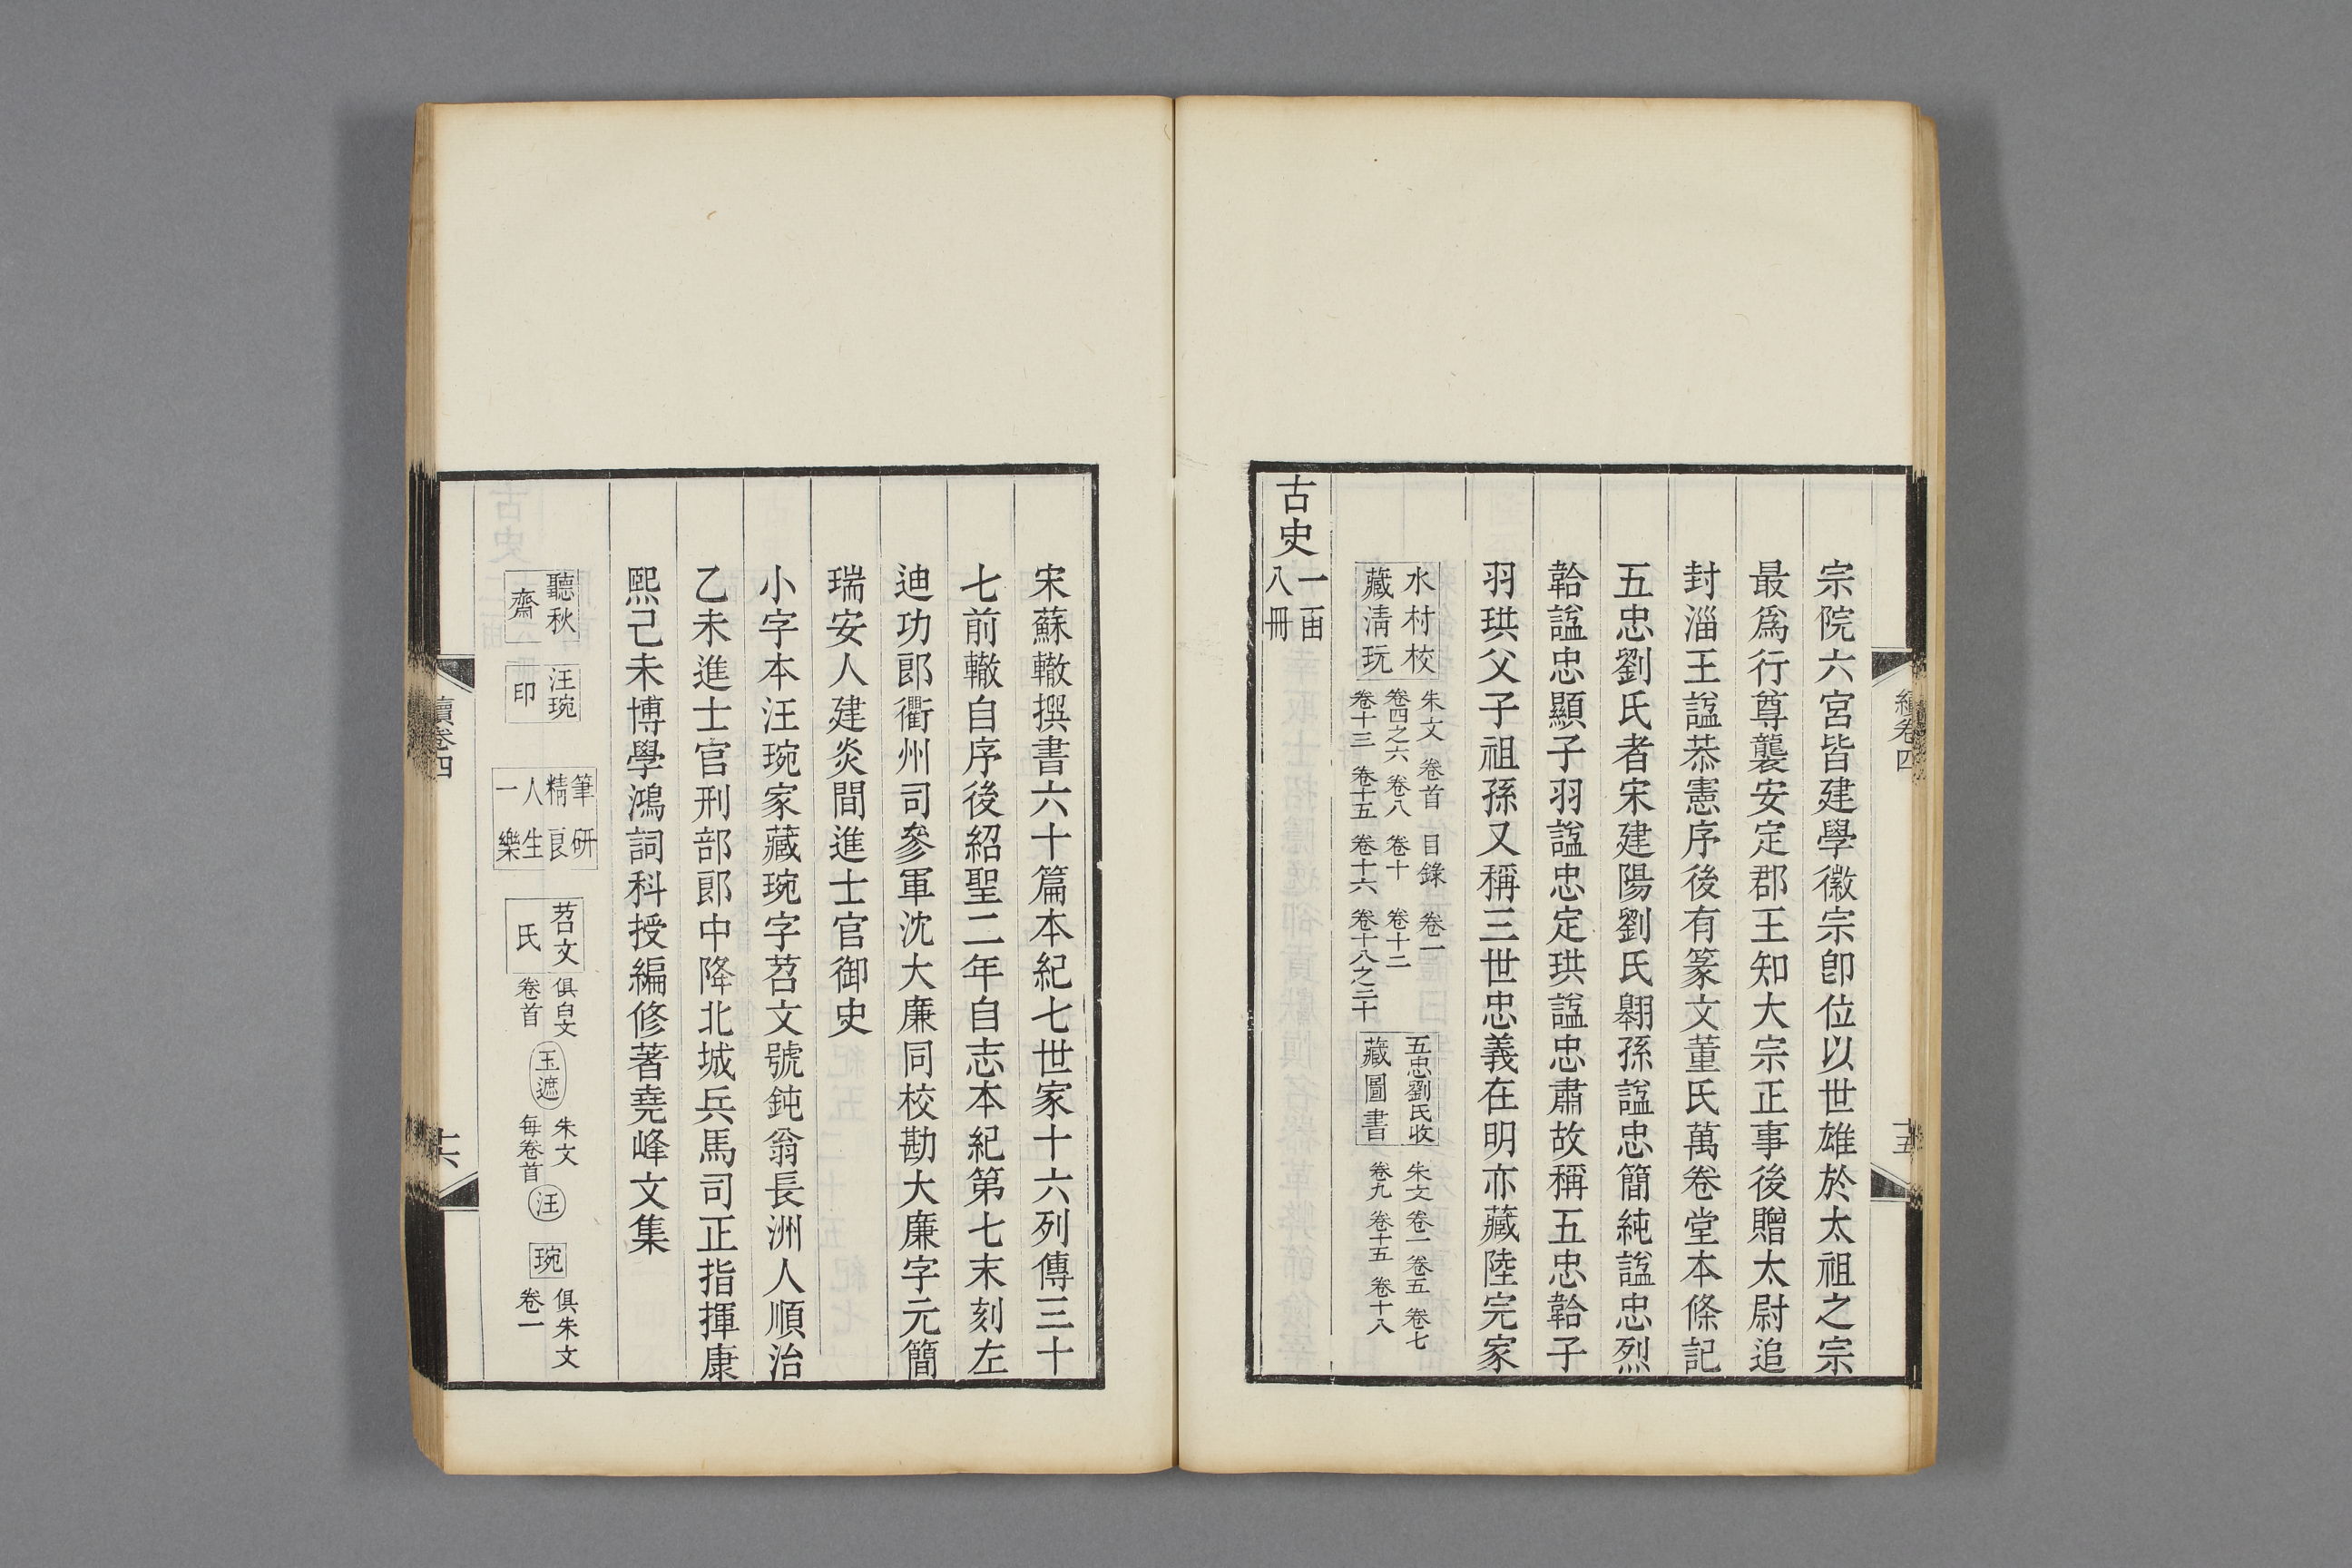 宗院六宮皆建學徽宗卽位以世雄於太祖之宗
最爲行尊襲安定郡王知大宗正事後贈太尉追
封淄王諡恭憲序後有篆文董氏萬卷堂本條記
五忠劉氏者宋建陽劉氏翺孫諡忠簡純諡忠烈
韐諡忠顯子羽諡忠定珙諡忠肅故稱五忠韐子
羽珙父子祖孫又稱三世忠義在明亦藏陸完家
水村校
藏淸玩
朱文 卷首 目錄 卷一
卷四之六 卷八 卷十 卷十二
卷十三 卷十五 卷十六 卷十八之二十
五忠劉氏收
藏圖書
朱文 卷一 卷五 卷七
卷九 卷十五 卷十八
古史
一函
八冊
續卷四
十五
宋蘇轍撰書六十篇本紀七世家十六列傳三十
七前轍自序後紹聖二年自志本紀第七末刻左
迪功郎衢州司參軍沈大廉同校勘大廉字元簡
瑞安人建炎間進士官御史
小字本汪琬家藏琬字苕文號鈍翁長洲人順治
乙未進士官刑部郎中降北城兵馬司正指揮康
熙己未博學鴻詞科授編修著堯峰文集
聽秋
齋
汪琬
印
筆研
精良
人生
一樂
苕文
氏
俱白文
卷首
玉遮
朱文
每卷首
汪
琬
俱朱文
卷一
續卷四
十六